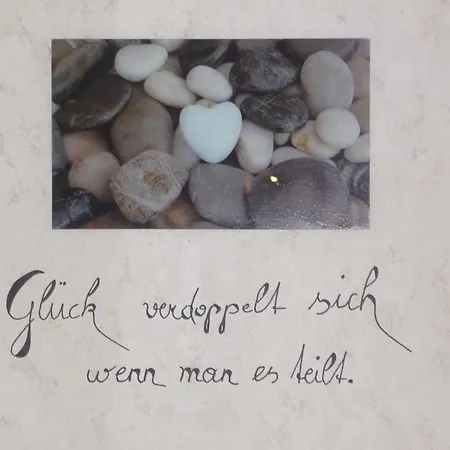 Glück verdoppelt sich
wenn man es teilt.